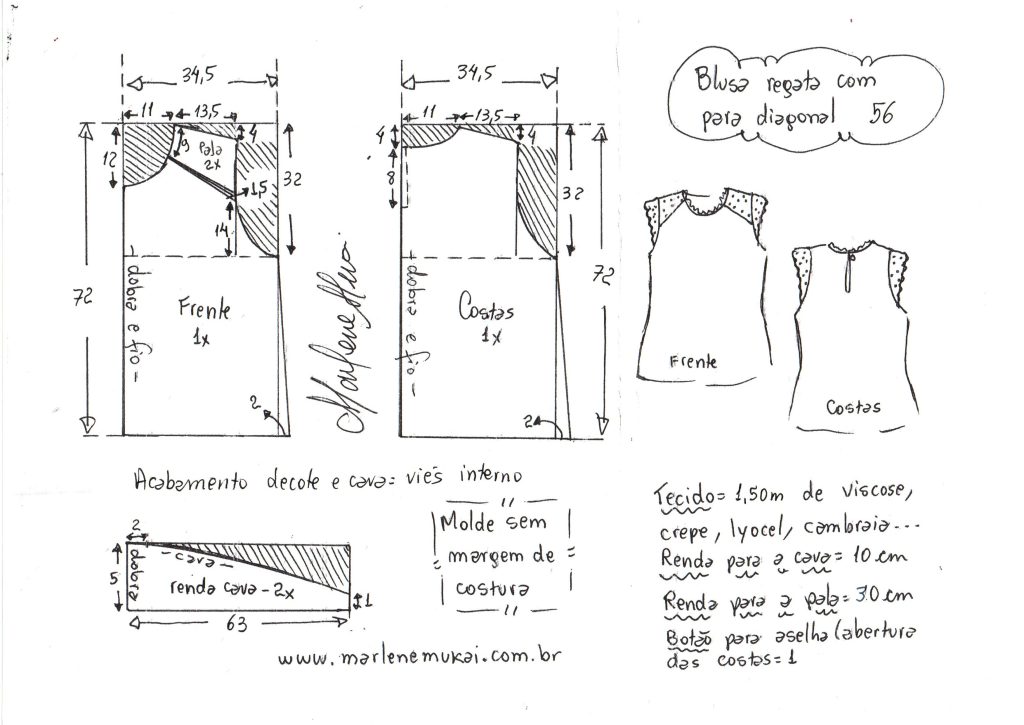 Blusa regata com
para diagonal 56
34,5
11
13,5
4
12
9
Pala
2x
1,5
14
32
72
dobra e fio
Frente
1x
2
34,5
11
13,5
4
4
8
32
72
dobra e fio
Costas
1x
2
Frente
Costas
Acabamento decote e cava = viés interno
2
5
dobra
cava
renda cava - 2x
1
63
Molde sem
margem de
costura
Tecido = 1,50m de viscose,
crepe, lyocel, cambraia...
Renda para a cava = 10 cm
Renda para a pala = 30 cm
Botão para aselha (abertura
das costas = 1
www.marlenemukai.com.br